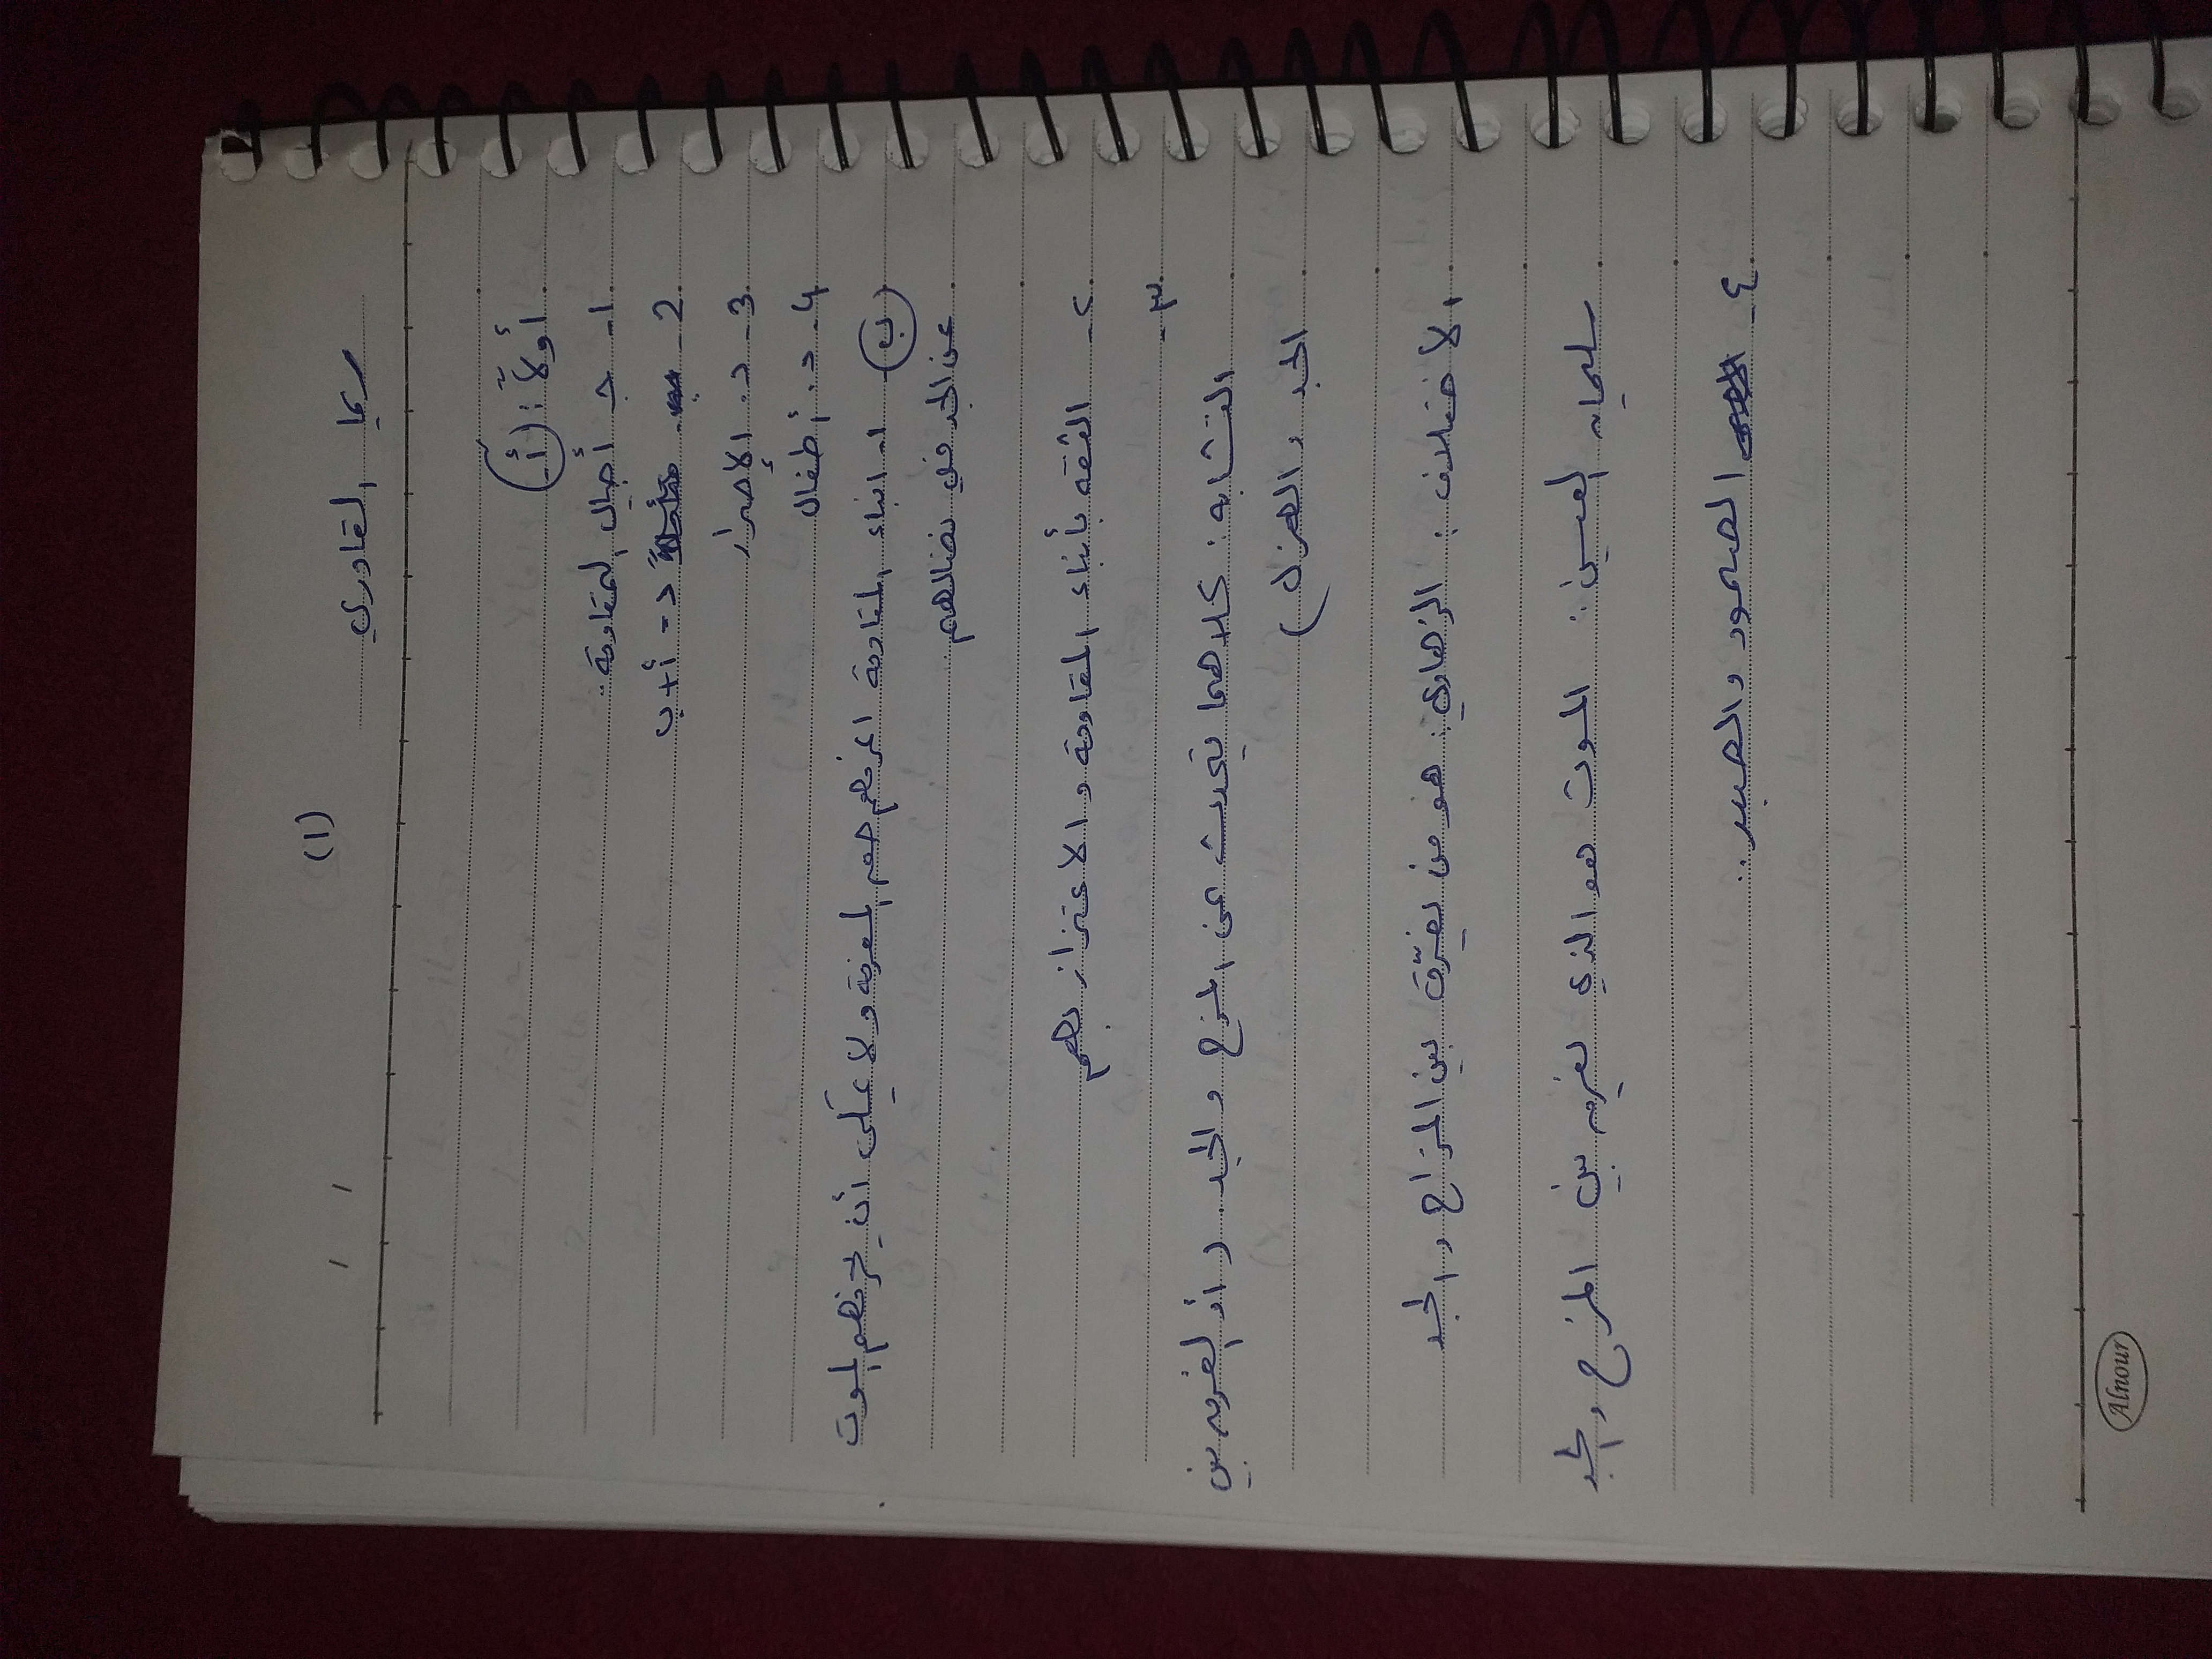 (1)
ريما القادري
أولاً: (أ)
1- جـ أجيال المقاومة..
2- د - أ+ب
3- د. الإصرار
4- د. أطفال
(ب) ا- ابناء المقاومة اعرفهم حق المعرفة و لا على أن الموت
عن الجد في نضالهم
٢- الثقة بأبناء المقاومة و الاعتزاز بهم
٣-
التشابه: كلاهما يتحدث عن المزح و الجد. ( أو الفرق بين
الجد و الهزل )
الاختلاف: الزهاوي: هو من يفرّق بين المزاح و الجد
سليمان العيسى: الموت هو الذي يفرق بين المزح و الجد
٤- الصمود و الصبر..
Alnour